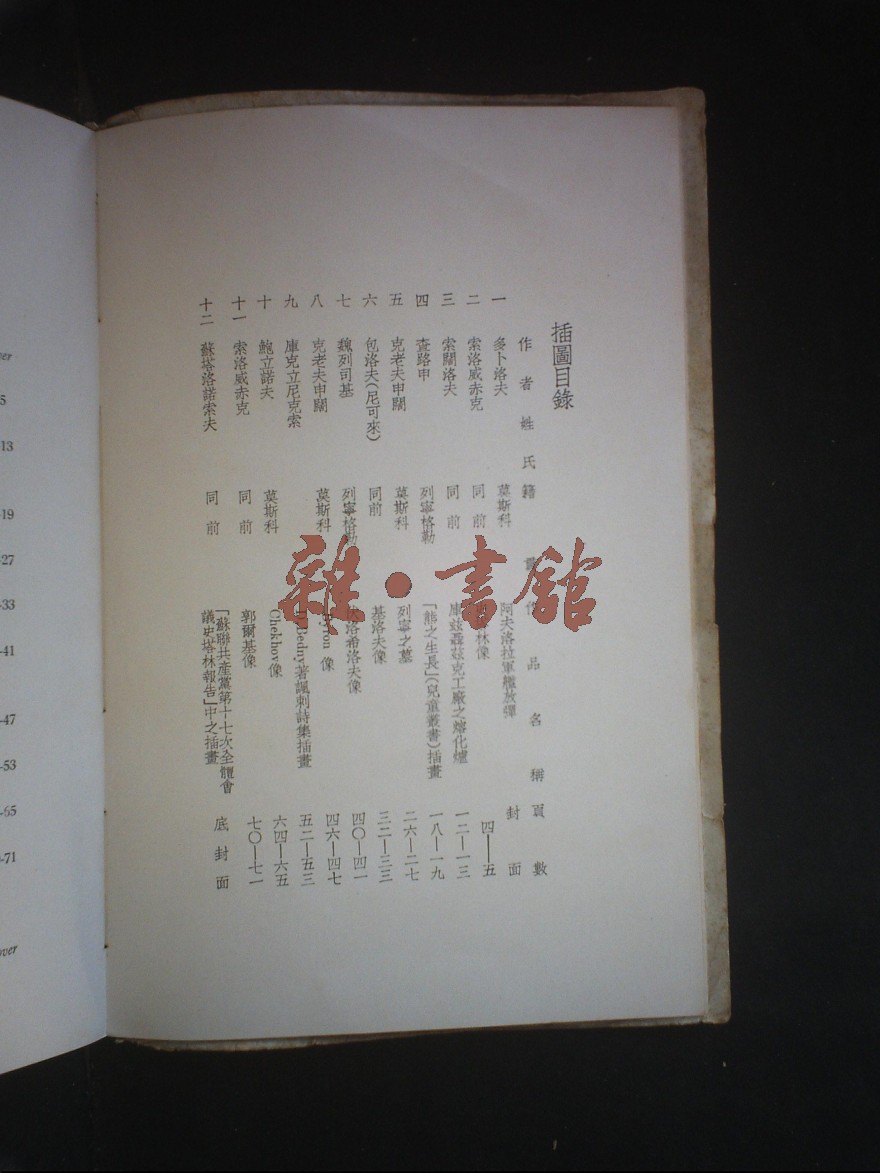 ver
5
13
-19
-27
-33
-41
-47
-53
-65
-71
over
插圖目錄
作者姓氏 籍 作品名稱 頁數
一 多卜洛夫 莫斯科 阿夫洛拉軍艦放彈 封面
二 索洛威赤克 同前 林像 四—五
三 索關洛夫 同前 庫茲聶茲克工廠之熔化爐 一二—一三
四 查路申 列寧格勒 「熊之生長」(兒童叢書)插畫 一八—一九
五 克老夫申關 莫斯科 列寧之墓 二六—二七
六 包洛夫(尼可來) 同前 基洛夫像 三二—三三
七 魏列司基 列寧格勒 洛希洛夫像 四〇—四一
八 克老夫申關 莫斯科 Byron 像 四六—四七
九 庫克立尼克索 D. Bedny著諷刺詩集插畫 五二—五三
十 鮑立諾夫 莫斯科 Chekhov像 六四—六五
十一 索洛威赤克 同前 郭爾基像 七〇—七一
十二 蘇塔洛諾索夫 同前 「蘇聯共產黨第十七次全體會
議史塔林報告」中之插畫 底封面
雜·書館